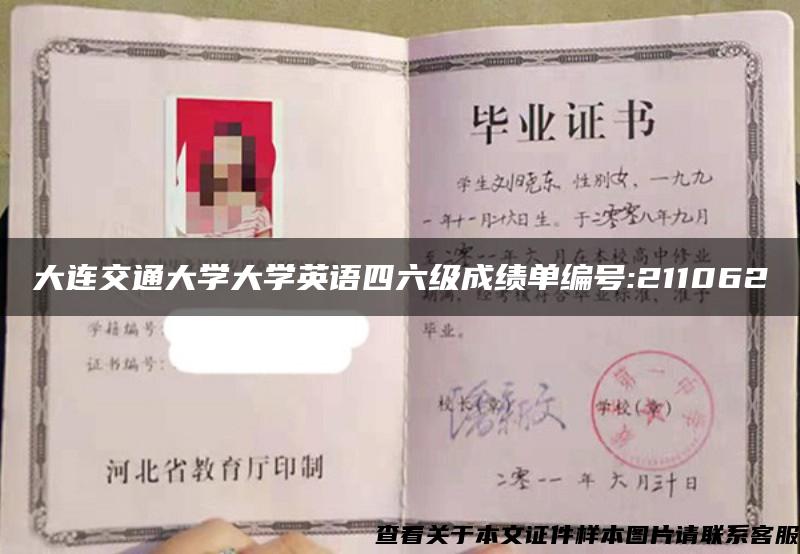 毕业证书
学生刘晓东 性别女，一九九
一年十一月二十六日生。于二零零八年九月
至二零一一年六月在本校高中修业
期满，经考核符合毕业标准，准予
毕业。
大连交通大学大学英语四六级成绩单编号:211062
学籍编号:
证书编号:
校长(章)
学校(章)
第一中学
河北省教育厅印制
二零一一年六月三十日
查看关于本文证件样本图片请联系客服